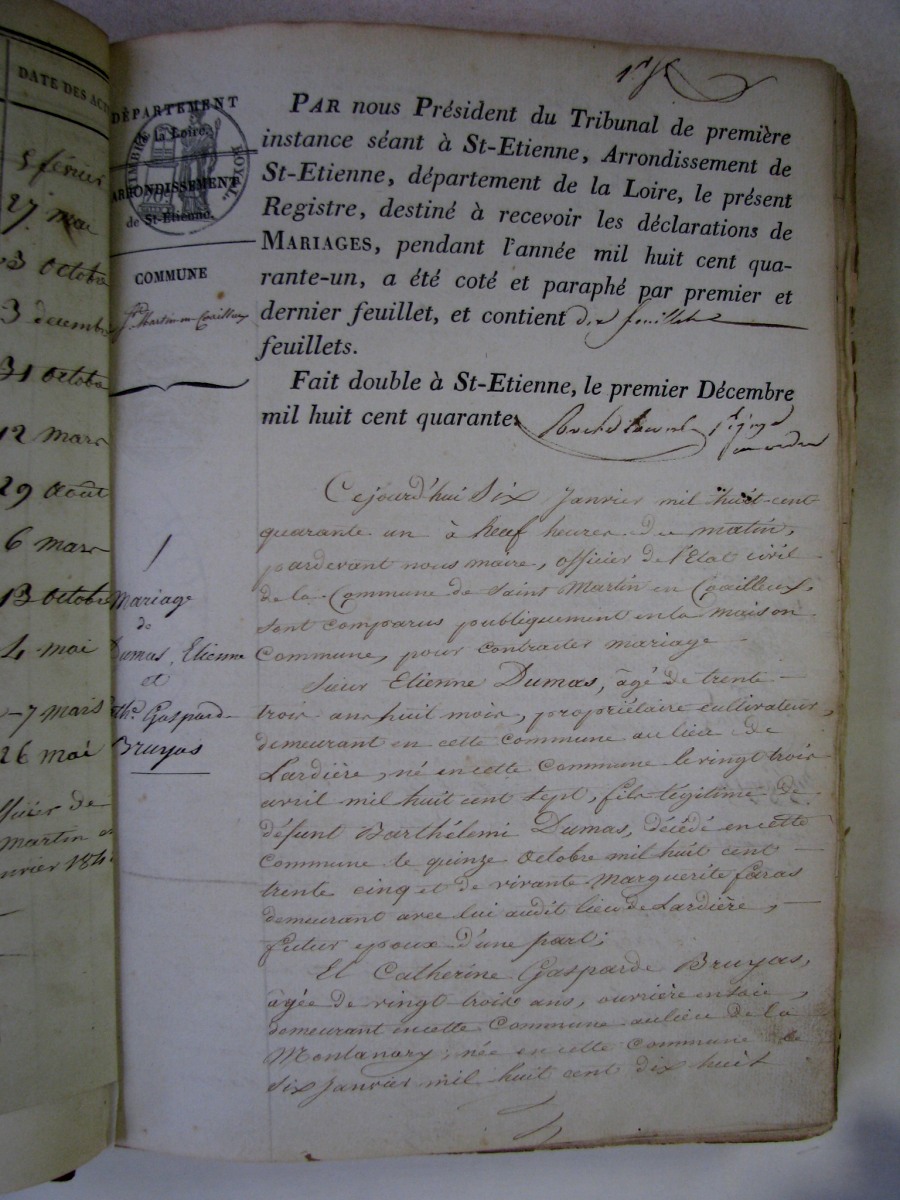 DATE DES ACT
5 février
27 mai
3 Octobre
3 decembre
31 octobre
12 mars
29 août
6 mars
13 Octobre
4 mai
7 mars
26 mai
officier de
martin en
DÉPARTEMENT
de la Loire.
TIMBRE ROYAL
ARRONDISSEMENT
de St-Etienne.
COMMUNE
St Martin-en-Coailleux
1er
PAR nous Président du Tribunal de première
instance séant à St-Etienne, Arrondissement de
St-Etienne, département de la Loire, le présent
Registre, destiné à recevoir les déclarations de
MARIAGES, pendant l'année mil huit cent qua-
rante-un, a été coté et paraphé par premier et
dernier feuillet, et contient dix feuillets
feuillets.
Fait double à St-Etienne, le premier Décembre
mil huit cent quarante.
1
Mariage
de
Dumas, Etienne
et
Cathe. Gasparde
Bruyas
Cejourd'hui Six Janvier mil huit-cent
quarante un à Neuf heures du matin,
pardevant nous maire, officier de l'Etat civil
de la Commune de Saint Martin en Coailleux,
sont comparus publiquement en la maison
Commune, pour contracter mariage
Sieur Etienne Dumas, âgé de trente
trois ans huit mois, propriétaire cultivateur,
demeurant en cette commune au lieu de
Lardière, né en cette Commune le vingt trois
avril mil huit cent sept, fils légitime de
défunt Barthélemi Dumas, décédé en cette
commune le quinze Octobre mil huit cent
trente cinq et de vivante Marguerite Faras
demeurant avec lui audit lieu de Lardière,
futur epoux d'une part;
Et Catherine Gasparde Bruyas,
âgée de vingt-trois ans, ouvrière en soie,
demeurant en cette Commune au lieu de la
Montanary, née en cette commune le
six Janvier mil huit cent dix huit